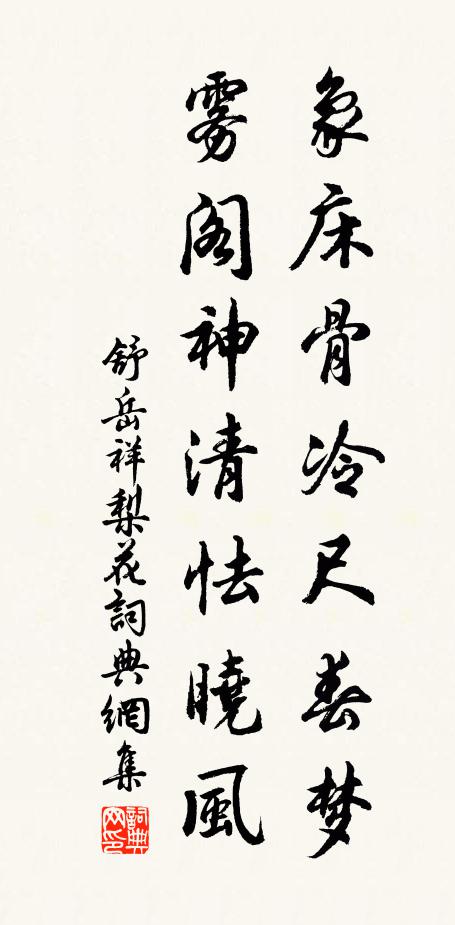 象床骨冷尺春梦
雾阁神清怯曉風
舒岳祥梨花詞典網集
詞典网印